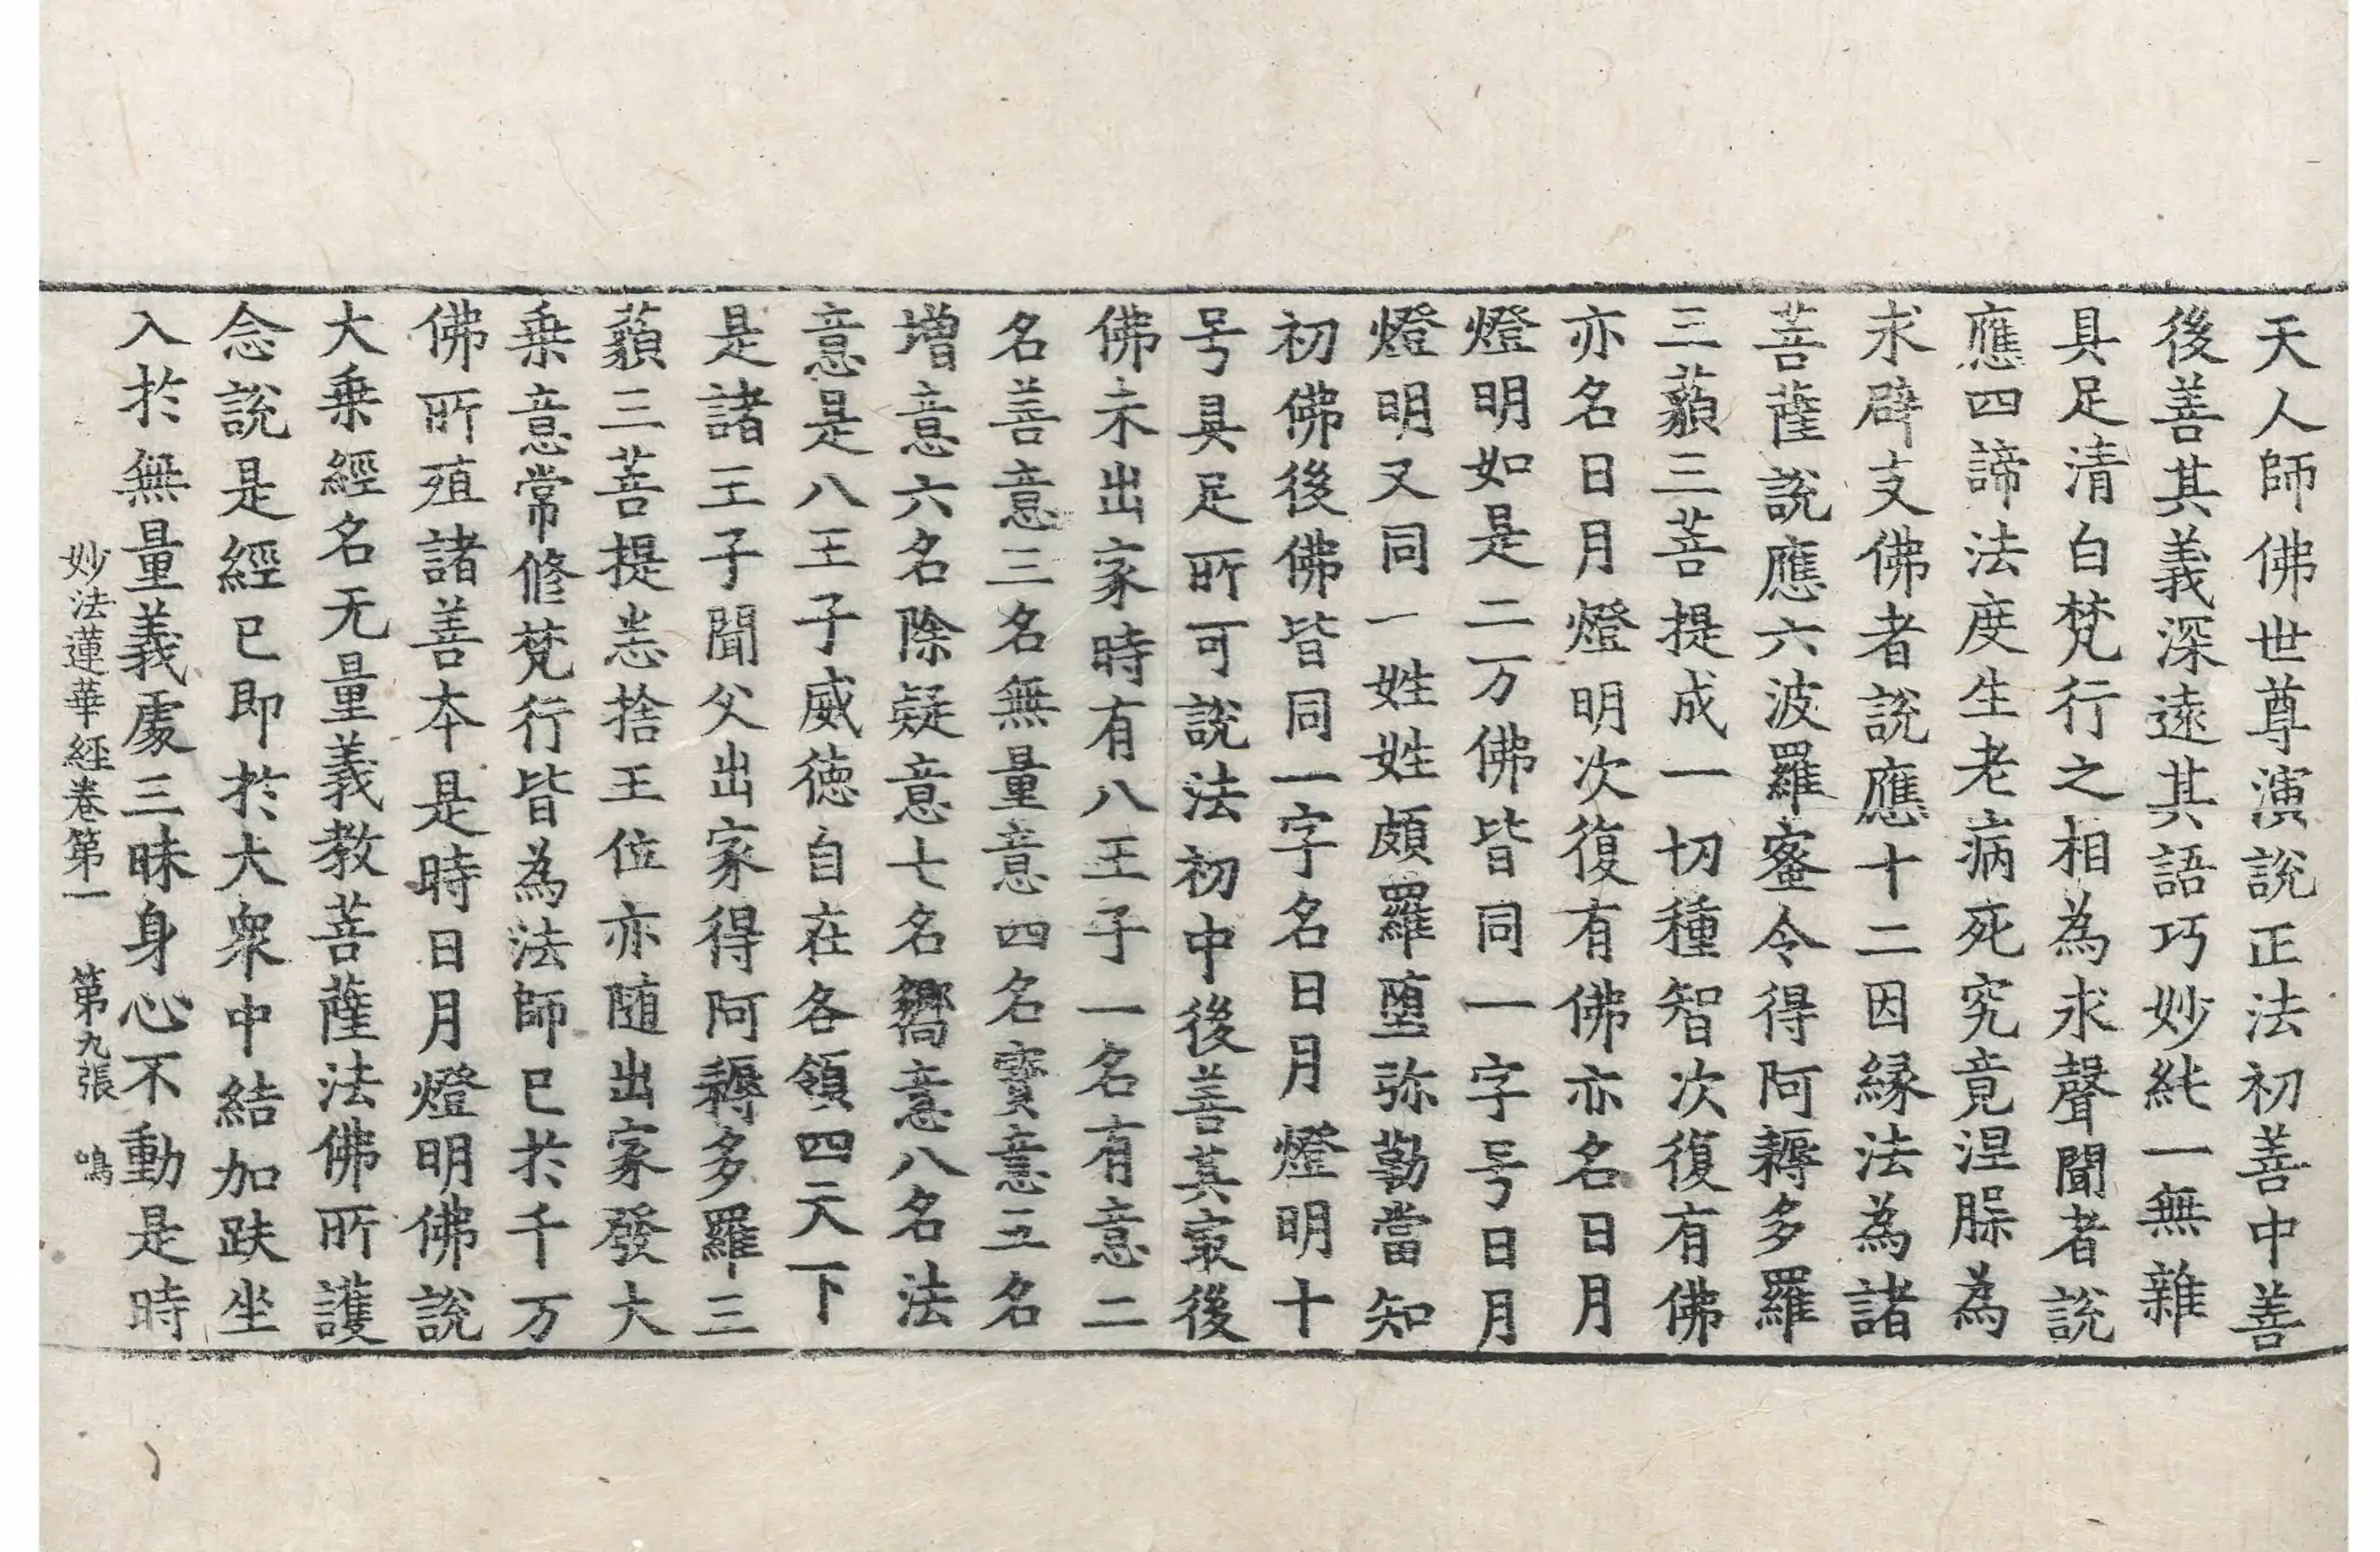 天人師佛世尊演說正法初善中善
後善其義深遠其語巧妙純一無雜
具足清白梵行之相為求聲聞者說
應四諦法度生老病死究竟涅槃為
求辟支佛者說應十二因緣法為諸
菩薩說應六波羅蜜令得阿耨多羅
三藐三菩提成一切種智次復有佛
亦名日月燈明次復有佛亦名日月
燈明如是二万佛皆同一字号日月
燈明又同一姓姓頗羅墮弥勒當知
初佛後佛皆同一字名日月燈明十
号具足所可說法初中後善其冣後
佛未出家時有八王子一名有意二
名善意三名無量意四名寶意五名
增意六名除疑意七名嚮意八名法
意是八王子威德自在各領四天下
是諸王子聞父出家得阿耨多羅三
藐三菩提悉捨王位亦随出家發大
乗意常修梵行皆為法師已於千万
佛所殖諸善本是時日月燈明佛說
大乗經名无量義教菩薩法佛所護
念說是經已即於大衆中結加趺坐
入於無量義處三昧身心不動是時
妙法蓮華経卷第一 第九張 鳴